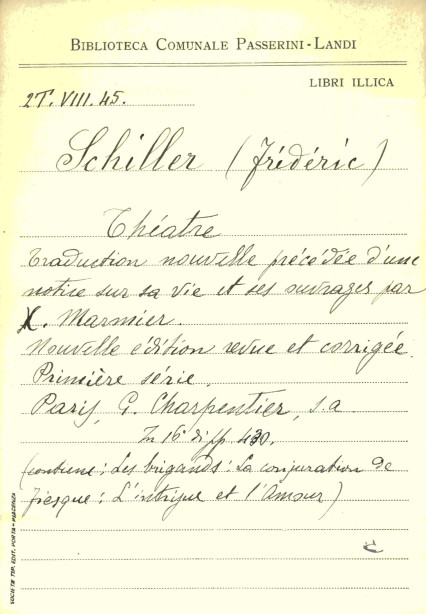 BIBLIOTECA COMUNALE PASSERINI-LANDI
LIBRI ILLICA
2T. VIII. 45.
Schiller (Frédéric)
Théatre
Traduction nouvelle précédée d'une
notice sur sa vie et ses ouvrages par
X. Marmier.
Nouvelle édition revue et corrigée
Primière série.
Paris, G. Charpentier, s.a
In 16° di pp. 430.
(contiene: Les brigands: La conjuration de
Fiesque: L'intrigue et l'Amour)
SOCIETÀ TIP. EDIT. PORTA - PIACENZA